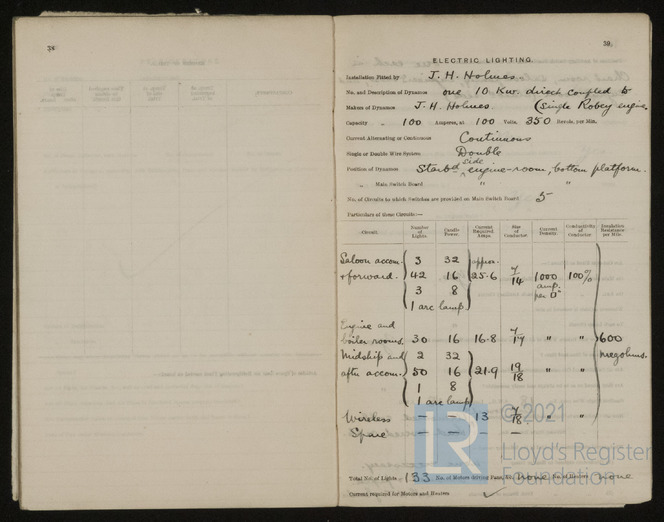 38
39.
ELECTRIC LIGHTING.
Installation Fitted by J. H. Holmes.
No. and Description of Dynamos one 10 Kw. direct coupled to
Makers of Dynamos J. H. Holmes. (single Robey engine
Capacity 100 Amperes, at 100 Volts, 350 Revols. per Min.
Current Alternating or Continuous Continuous
Single or Double Wire System Double
Position of Dynamos Starbd side engine-room, bottom platform.
" Main Switch Board " "
No. of Circuits to which Switches are provided on Main Switch Board 5
Particulars of these Circuits:—
Circuit. Number of Lights. Candle Power. Current Required. Amps. Size of Conductor. Current Density. Conductivity of Conductor. Insulation Resistance per Mile.
Saloon accom. 3 32 approx.
+ forward. 42 16 25.6 7/14 1000 amp. per □" 100%
3 8
1 arc lamp.
Engine and
boiler rooms. 30 16 16.8 7/17 " " 600
Midship and 2 32 megohms.
after accom. 50 16 21.9 19/18
1 8
1 arc lamp
Wireless — — 13 7/18 " "
Spare — — — —
Total No. of Lights 133 No. of Motors driving Fans, &c. none No. of Heaters none
Current required for Motors and Heaters ✓
LR
© 2021
Lloyd's Register
Foundation